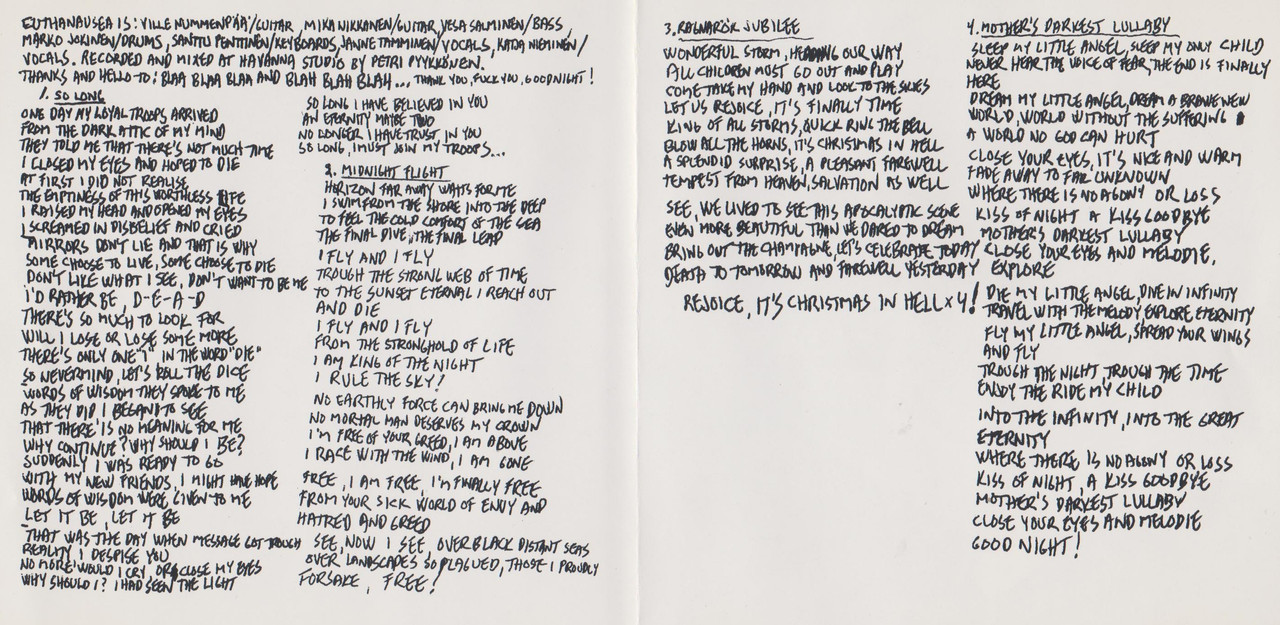 EUTHANAUSEA IS: VILLE NUMMENPÄÄ/GUITAR, MIKA NIKKANEN/GUITAR, VESA SALMINEN/BASS,
MARKO JOKINEN/DRUMS, SANTTU PENTTINEN/KEYBOARDS, JANNE TAMMINEN/VOCALS, KATJA NIEMINEN/
VOCALS. RECORDED AND MIXED AT HAVANNA STUDIO BY PETRI PYYKKÖNEN.
THANKS AND HELLO TO: BLAA BLAA BLAA AND BLAH BLAH BLAH... THANK YOU, FUCK YOU, GOODNIGHT!
1. SO LONG
ONE DAY MY LOYAL TROOPS ARRIVED
FROM THE DARK ATTIC OF MY MIND
THEY TOLD ME THAT THERE'S NOT MUCH TIME
I CLOSED MY EYES AND HOPED TO DIE
AT FIRST I DID NOT REALISE
THE EMPTINESS OF THIS WORTHLESS LIFE
I RAISED MY HEAD AND OPENED MY EYES
I SCREAMED IN DISBELIEF AND CRIED
MIRRORS DON'T LIE AND THAT IS WHY
SOME CHOOSE TO LIVE, SOME CHOOSE TO DIE
DON'T LIKE WHAT I SEE, DON'T WANT TO BE ME
I'D RATHER BE, D-E-A-D
THERE'S SO MUCH TO LOOK FOR
WILL I LOSE OR LOSE SOME MORE
THERE'S ONLY ONE "I" IN THE WORD "DIE"
SO NEVERMIND, LET'S ROLL THE DICE
WORDS OF WISDOM THEY SPOKE TO ME
AS THEY DID I BEGAN TO SEE
THAT THERE IS NO MEANING FOR ME
WHY CONTINUE? WHY SHOULD I BE?
SUDDENLY I WAS READY TO GO
WITH MY NEW FRIENDS, I MIGHT HAVE HOPE
WORDS OF WISDOM WERE GIVEN TO ME
LET IT BE, LET IT BE
THAT WAS THE DAY WHEN MESSAGE GOT TROUGH
REALITY, I DESPISE YOU
NO MORE WOULD I CRY, OR CLOSE MY EYES
WHY SHOULD I? I HAD SEEN THE LIGHT
SO LONG I HAVE BELIEVED IN YOU
AN ETERNITY MAYBE TWO
NO LONGER I HAVE TRUST IN YOU
SO LONG, I MUST JOIN MY TROOPS...
2. MIDNIGHT FLIGHT
HORIZON FAR AWAY WAITS FOR ME
I SWIM FROM THE SHORE INTO THE DEEP
TO FEEL THE COLD COMFORT OF THE SEA
THE FINAL DIVE, THE FINAL LEAP
I FLY AND I FLY
TROUGH THE STRONG WEB OF TIME
TO THE SUNSET ETERNAL I REACH OUT
AND DIE
I FLY AND I FLY
FROM THE STRONGHOLD OF LIFE
I AM KING OF THE NIGHT
I RULE THE SKY!
NO EARTHLY FORCE CAN BRING ME DOWN
NO MORTAL MAN DESERVES MY CROWN
I'M FREE OF YOUR GREED, I AM ABOVE
I RACE WITH THE WIND, I AM GONE
FREE, I AM FREE, I'M FINALLY FREE
FROM YOUR SICK WORLD OF ENVY AND
HATRED AND GREED
SEE, NOW I SEE, OVER BLACK DISTANT SEAS
OVER LANDSCAPES SO PLAGUED, THOSE I PROUDLY
FORSAKE, FREE!
3. RAGNARÖK JUBILEE
WONDERFUL STORM, HEADING OUR WAY
ALL CHILDREN MUST GO OUT AND PLAY
COME TAKE MY HAND AND LOOK TO THE SKIES
LET US REJOICE, IT'S FINALLY TIME
KING OF ALL STORMS, QUICK RING THE BELL
BLOW ALL THE HORNS, IT'S CHRISTMAS IN HELL
A SPLENDID SURPRISE, A PLEASANT FAREWELL
TEMPEST FROM HEAVEN, SALVATION AS WELL
SEE, WE LIVED TO SEE THIS APOCALYPTIC SCENE
EVEN MORE BEAUTIFUL THAN WE DARED TO DREAM
BRING OUT THE CHAMPAGNE, LET'S CELEBRATE TODAY
DEATH TO TOMORROW AND FAREWELL YESTERDAY
REJOICE, IT'S CHRISTMAS IN HELL x 4!
4. MOTHER'S DARKEST LULLABY
SLEEP MY LITTLE ANGEL, SLEEP MY ONLY CHILD
NEVER HEAR THE VOICE OF FEAR, THE END IS FINALLY
HERE
DREAM MY LITTLE ANGEL, DREAM A BRAVE NEW
WORLD, WORLD WITHOUT THE SUFFERING
A WORLD NO GOD CAN HURT
CLOSE YOUR EYES, IT'S NICE AND WARM
FADE AWAY TO FAR UNKNOWN
WHERE THERE IS NO AGONY OR LOSS
KISS OF NIGHT A KISS GOODBYE
MOTHER'S DARKEST LULLABY
CLOSE YOUR EYES AND MELODIE,
EXPLORE
DIE MY LITTLE ANGEL, DIVE IN INFINITY
TRAVEL WITH THE MELODY EXPLORE ETERNITY
FLY MY LITTLE ANGEL, SPREAD YOUR WINGS
AND FLY
TROUGH THE NIGHT, TROUGH THE TIME
ENJOY THE RIDE MY CHILD
INTO THE INFINITY, INTO THE GREAT
ETERNITY
WHERE THERE IS NO AGONY OR LOSS
KISS OF NIGHT, A KISS GOODBYE
MOTHER'S DARKEST LULLABY
CLOSE YOUR EYES AND MELODIE
GOOD NIGHT!